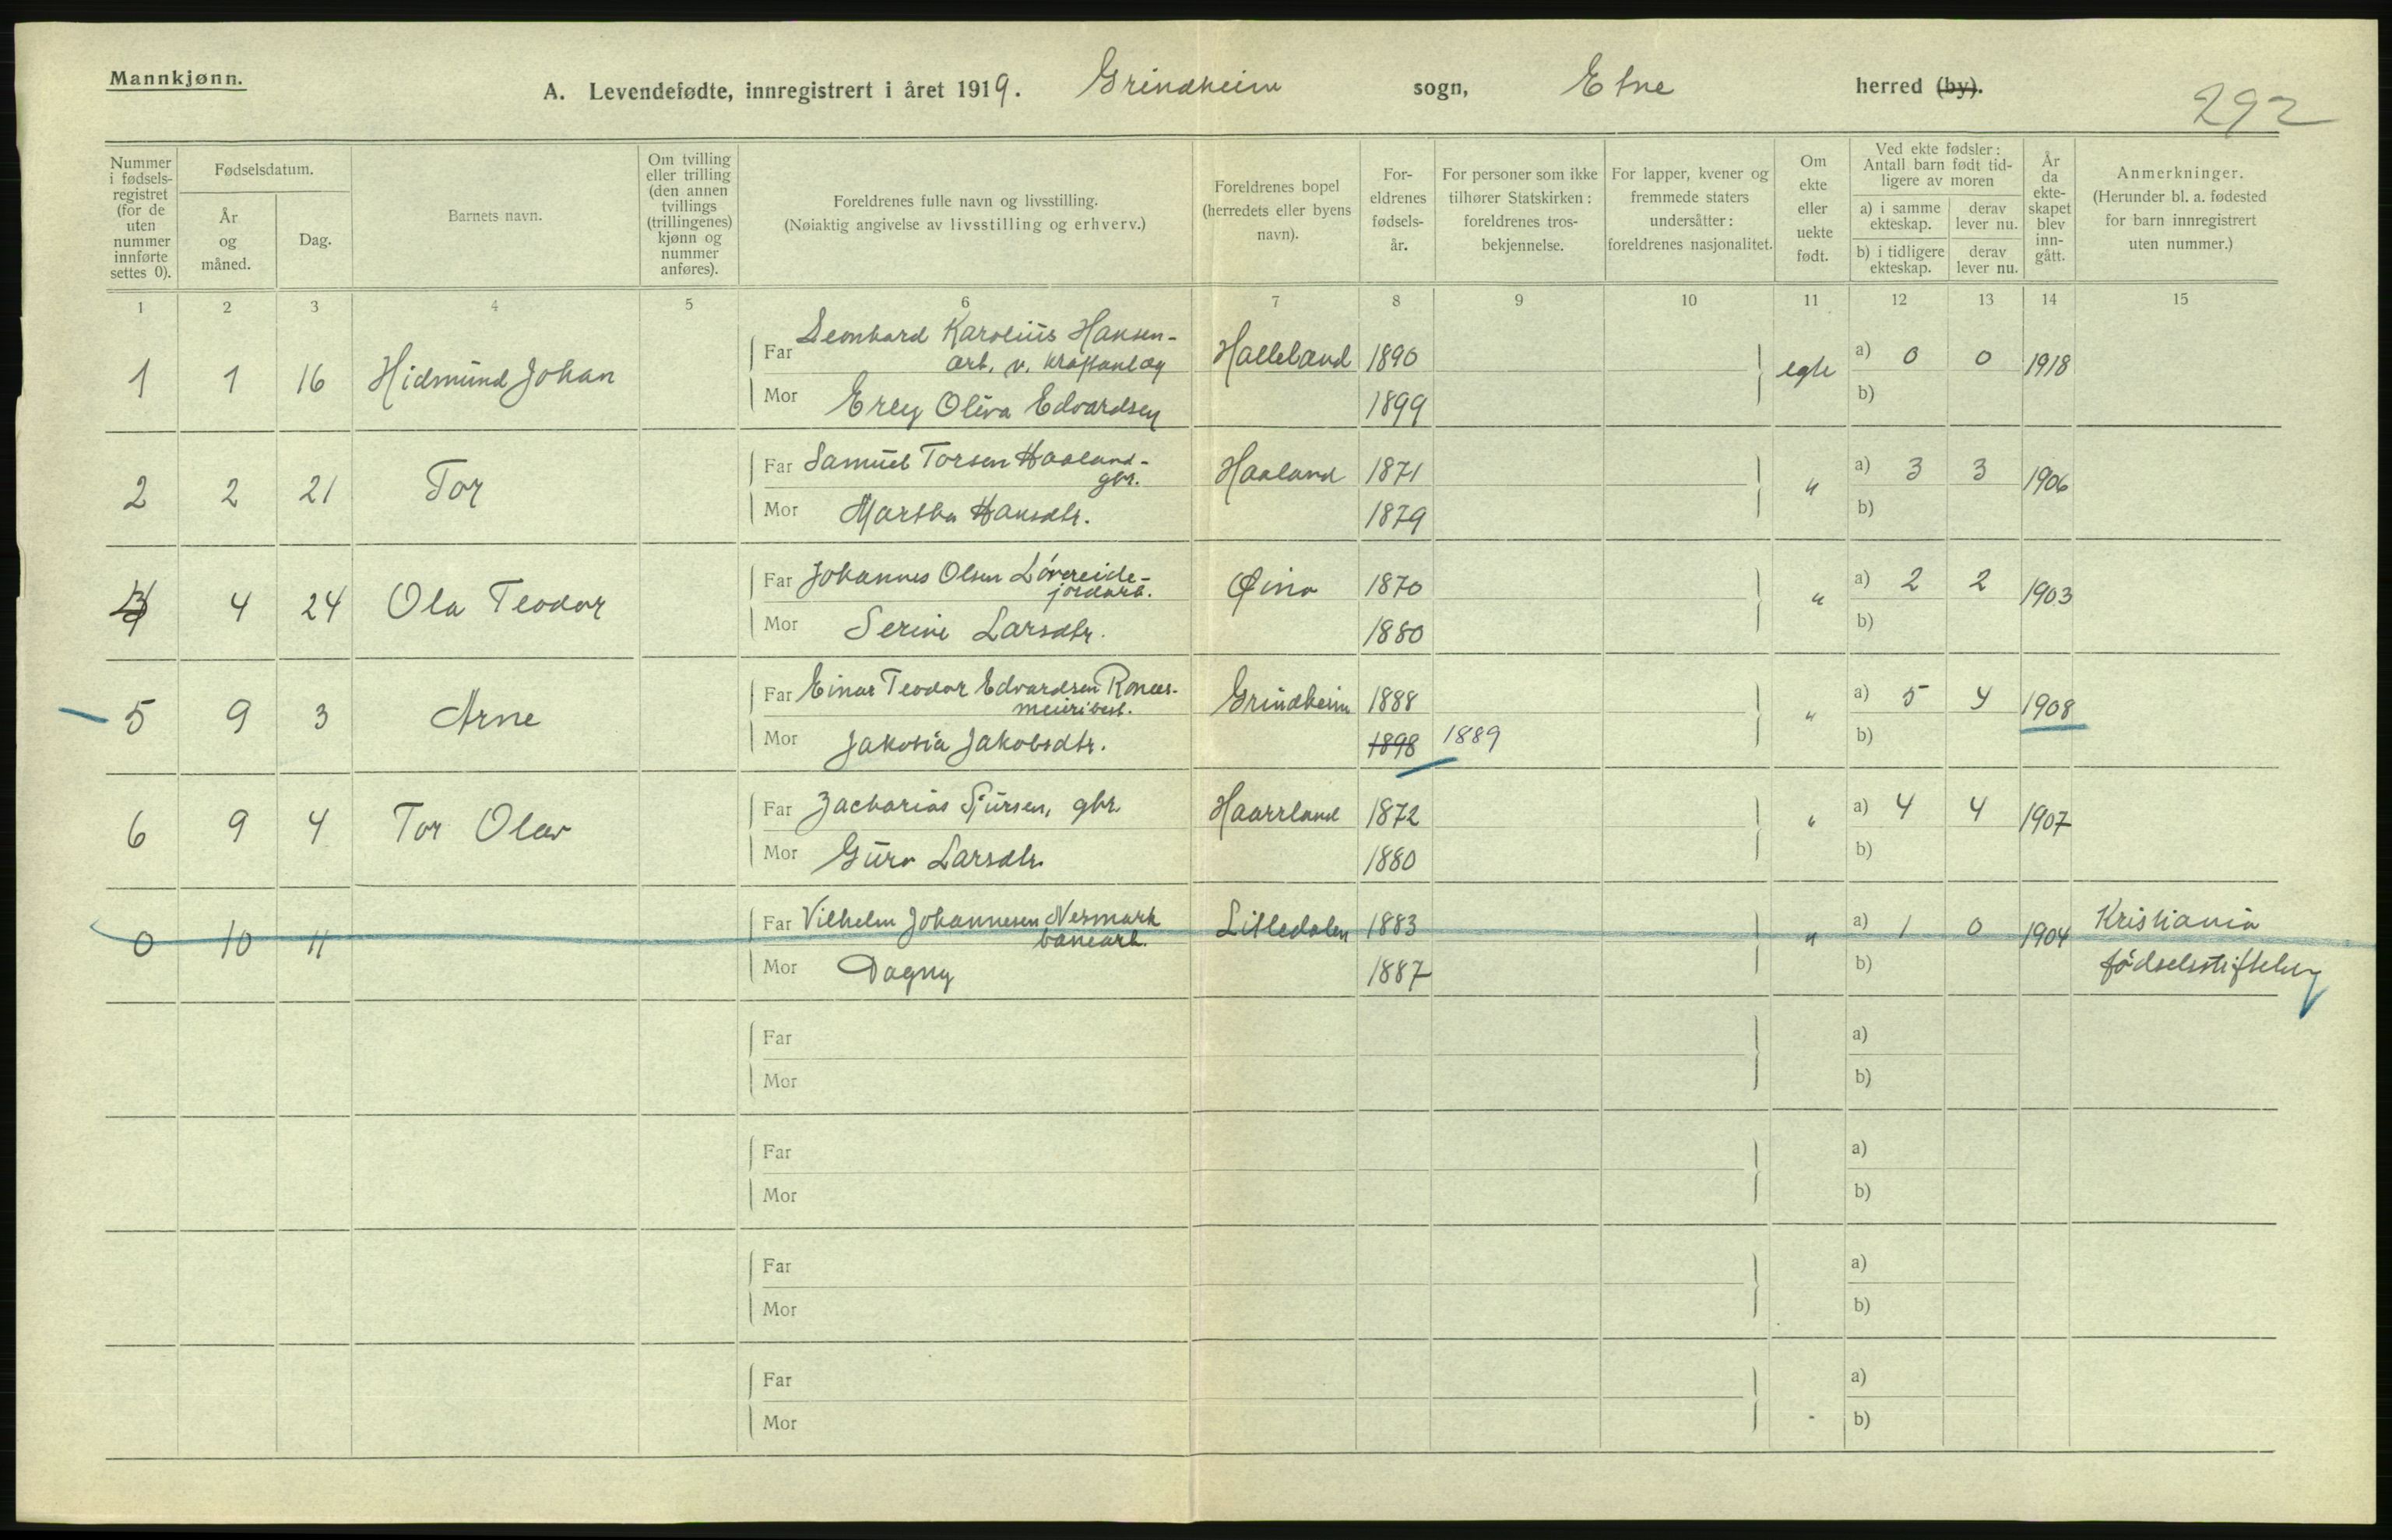 Mannkjønn.
A. Levendefødte, innregistrert i året 1919. Grindheim sogn, Etne herred (by).
292
Nummer i fødsels-registret (for de uten nummer innførte settes 0).
Fødselsdatum.
År og måned.
Dag.
Barnets navn.
Om tvilling eller trilling (den annen tvillings (trillingenes) kjønn og nummer anføres).
Foreldrenes fulle navn og livsstilling.
(Nøiaktig angivelse av livsstilling og erhverv.)
Foreldrenes bopel (herredets eller byens navn).
For-eldrenes fødsels-år.
For personer som ikke tilhører Statskirken: foreldrenes tros-bekjennelse.
For lapper, kvener og fremmede staters undersåtter: foreldrenes nasjonalitet.
Om ekte eller uekte født.
Ved ekte fødsler: Antall barn født tid-ligere av moren
a) i samme ekteskap.
derav lever nu.
b) i tidligere ekteskap.
derav lever nu.
År da ekte-skapet blev inn-gått.
Anmerkninger.
(Herunder bl. a. fødested for barn innregistrert uten nummer.)
1 2 3 4 5 6 7 8 9 10 11 12 13 14 15
1 1 16 Hidmund Johan Far Leonhard Karolius Hansen- Halleland 1890 egte a) 0 0 1918
arb. v. kraftanlæg
Mor Oliva Edvardsen 1899 b)
2 2 21 Tor Far Samuel Torsen Haaland- Haaland 1871 " a) 3 3 1906
gbr.
Mor Martha Hansdtr. 1879 b)
4 24 Ola Teodor Far Johannes Olsen Løvereide- 1870 " a) 2 2 1903
jordarb.
Mor Serine Larsdtr. 1880 b)
5 9 3 Arne Far Einar Teodor Edvardsen Grindheim 1888 " a) 5 4 1908
Mor Jakobia Jakobsdtr. 1898 1889 b)
6 9 4 Tor Olav Far Zacharias Sjursen, gbr. Haarrland 1872 " a) 4 4 1907
Mor Guro Larsdtr. 1880 b)
0 10 11 Far Vilhelm Johannesen Nesmark Litledalen 1883 " a) 1 0 1904 Kristiania
banearb.
Mor Dagny 1887 b) fødselsstiftelse
Far a)
Mor b)
Far a)
Mor b)
Far a)
Mor b)
Far a)
Mor b)